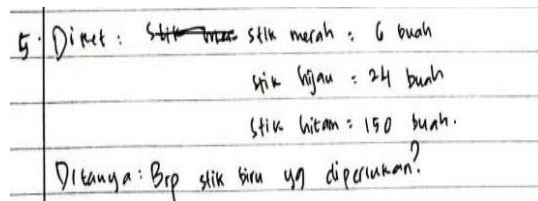 5. Diket : stik merah : 6 buah
stik hijau : 24 buah
stik hitam : 150 buah.
Ditanya : Brp stik biru yg diperlukan?